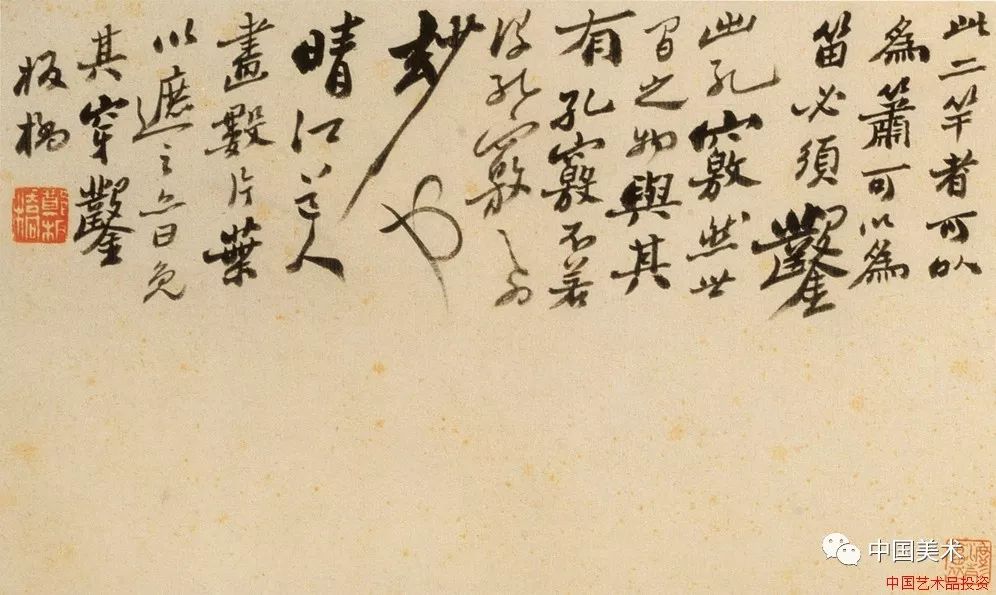 此二竿者可以
為簫可以為
笛必須鑿
出孔竅然世
間之物與其
有孔竅不若
沒孔竅之為
妙也
晴江道人
畫數片葉
以遮之亦曰免
其穿鑿
板橋
中国美术
中国艺术品投资